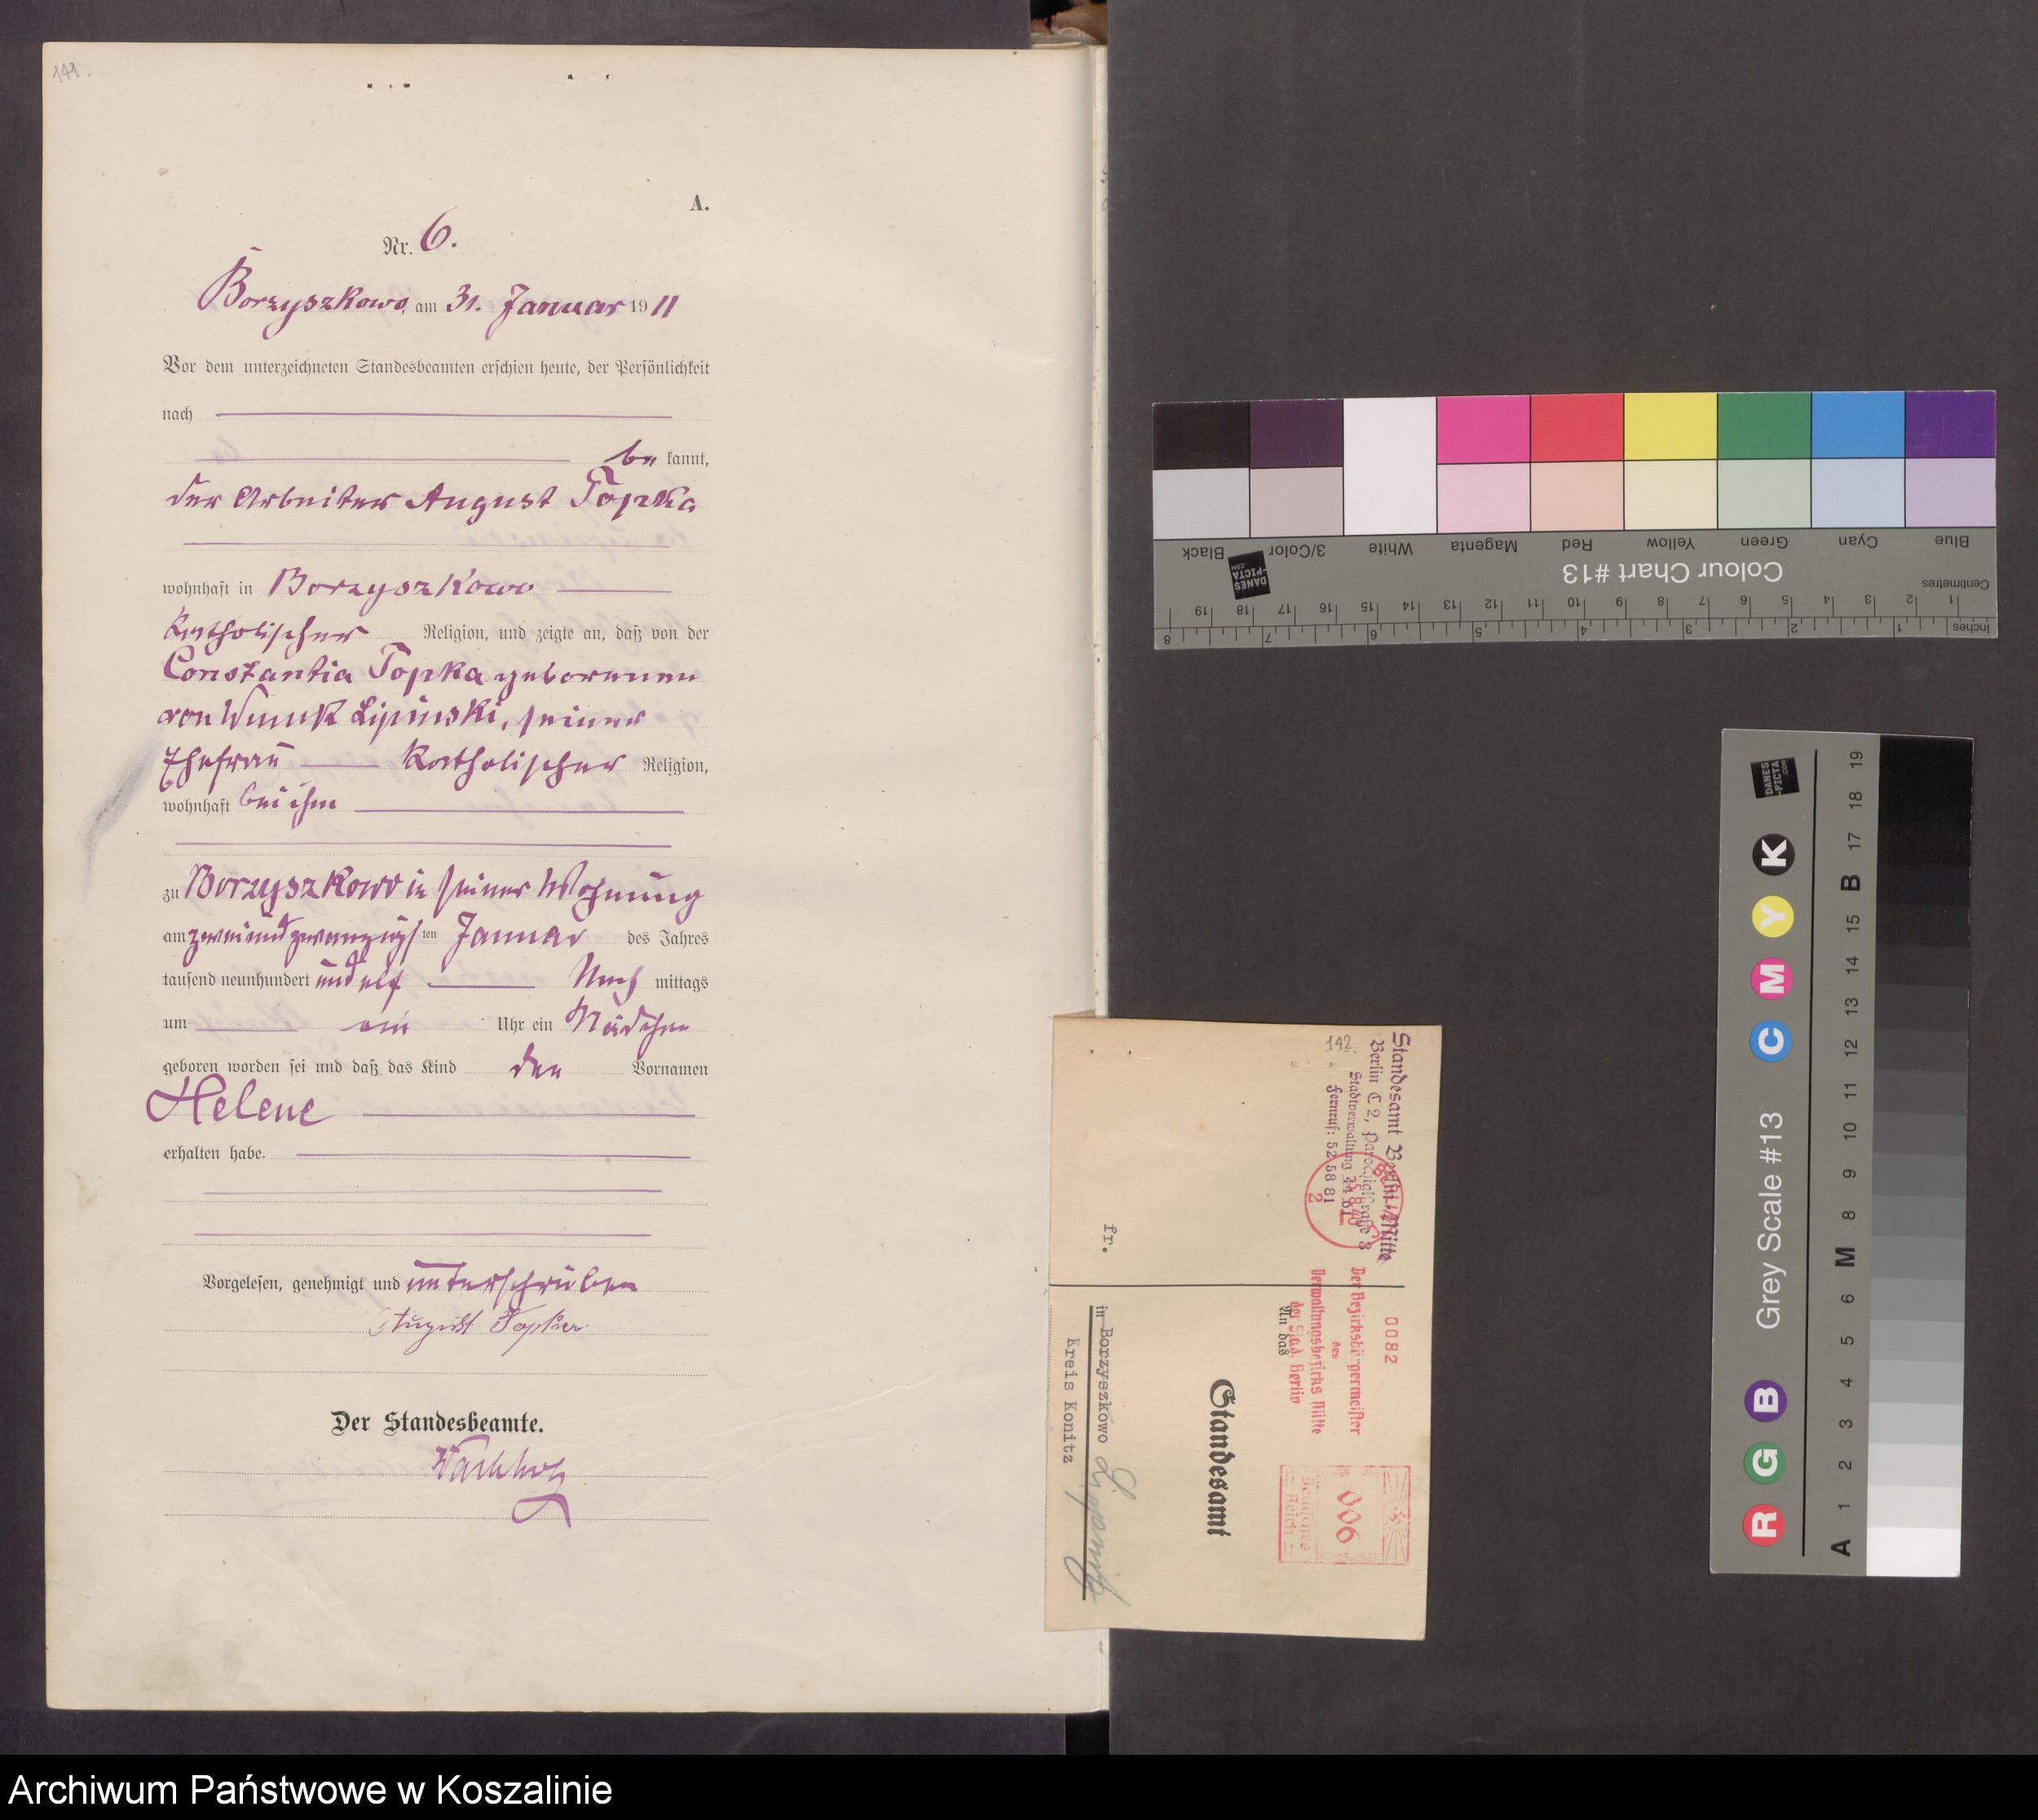 141.
A.
Nr. 6.
Borzyszkowo, am 31. Januar 1911
Vor dem unterzeichneten Standesbeamten erschien heute, der Persönlichkeit
nach
be kannt,
der Arbeiter August Topka
wohnhaft in Borzyszkowo
katholischer Religion, und zeigte an, daß von der
Constantia Topka geborenen
von Lipinski, seiner
Ehefrau katholischer Religion,
wohnhaft bei ihm
zu Borzyszkowo in seiner Wohnung
am zweiundzwanzigsten Januar des Jahres
tausend neunhundert und elf Nach mittags
um ein Uhr ein Mädchen
geboren worden sei und daß das Kind den Vornamen
Helene
erhalten habe.
Vorgelesen, genehmigt und unterschrieben
August Topka
Der Standesbeamte.
142.
Standesamt Berlin-Mitte
Berlin C 2, Parochialstraße 3
Stadtverwaltung
Fernruf: 52 58 81
2
fr.
0082
Der Bezirksbürgermeister
des
Verwaltungsbezirks Mitte
der Stadt Berlin
An das
006
Deutsches
Reich
Standesamt
in Borzyszkowo
Kreis Konitz
Black
3/Color
White
Magenta
Red
Yellow
Green
Cyan
Blue
Colour Chart #13
DANES
-PICTA
.COM
Centimetres
19 18 17 16 15 14 13 12 11 10 9 8 7 6 5 4 3 2 1
8 7 6 5 4 3 2 1 Inches
Grey Scale #13
R G B C M Y K
DANES
-PICTA
.COM
A 1 2 3 4 5 6 M 8 9 10 11 12 13 14 15 B 17 18 19
Archiwum Państwowe w Koszalinie